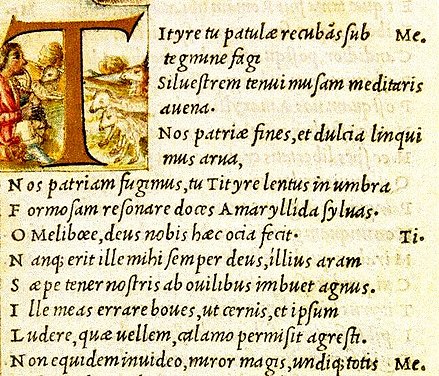 TItyre tu patulæ recubãs sub Me.
tegmine fagi
Siluestrem tenui musam meditaris
auena.
Nos patriæ fines, et dulcia linqui
mus arua,
Nos patriam fugimus, tu Tityre lentus in umbra
Formosam resonare doces Amaryllida syluas.
O Melibœe, deus nobis hæc ocia fecit. Ti.
Nanq; erit ille mihi semper deus, illius aram
Sæpe tener nostris ab ouilibus imbuet agnus.
Ille meas errare boues, ut cernis, et ipsum
Ludere, quæ uellem, calamo permisit agresti.
Non equidem inuideo, miror magis, undiq; totis Me.